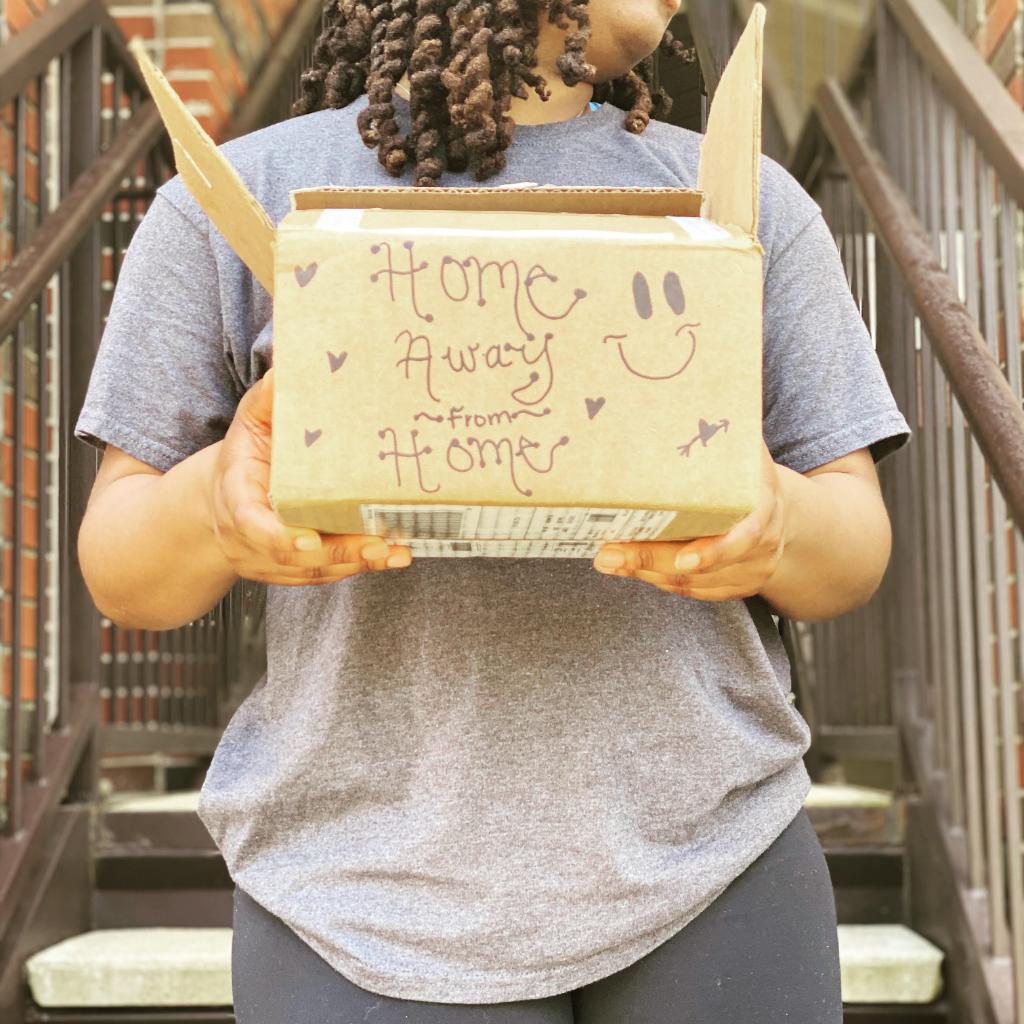 Home
Away
~from~
Home